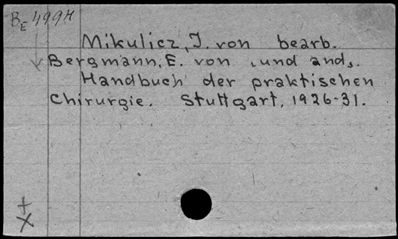 BE 499H
Mikulicz, J. von bearb.
Bergmann, E. von , und and,.
Handbuch der praktischen
Chirurgie. Stuttgart, 1926-31.